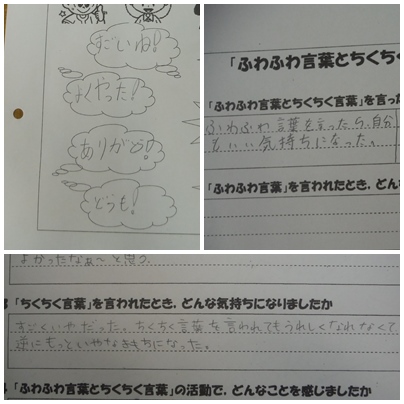 すごいね!
よくやった!
ありがとう!
どうも!
「ふわふわ言葉とちくちく
「ふわふわ言葉とちくちく言葉」を言っ
ふわふわ言葉を言ったら、自分
もいい気持ちになった。
「ふわふわ言葉」を言われたとき、どん
よかったなぁ〜と思う。
「ちくちく言葉」を言われたとき、どんな気持ちになりましたか
すごくいやだった。ちくちく言葉を言われてもうれしくなれなくて、
逆にもっといやなきもちになった。
「ふわふわ言葉とちくちく言葉」の活動で、どんなことを感じましたか